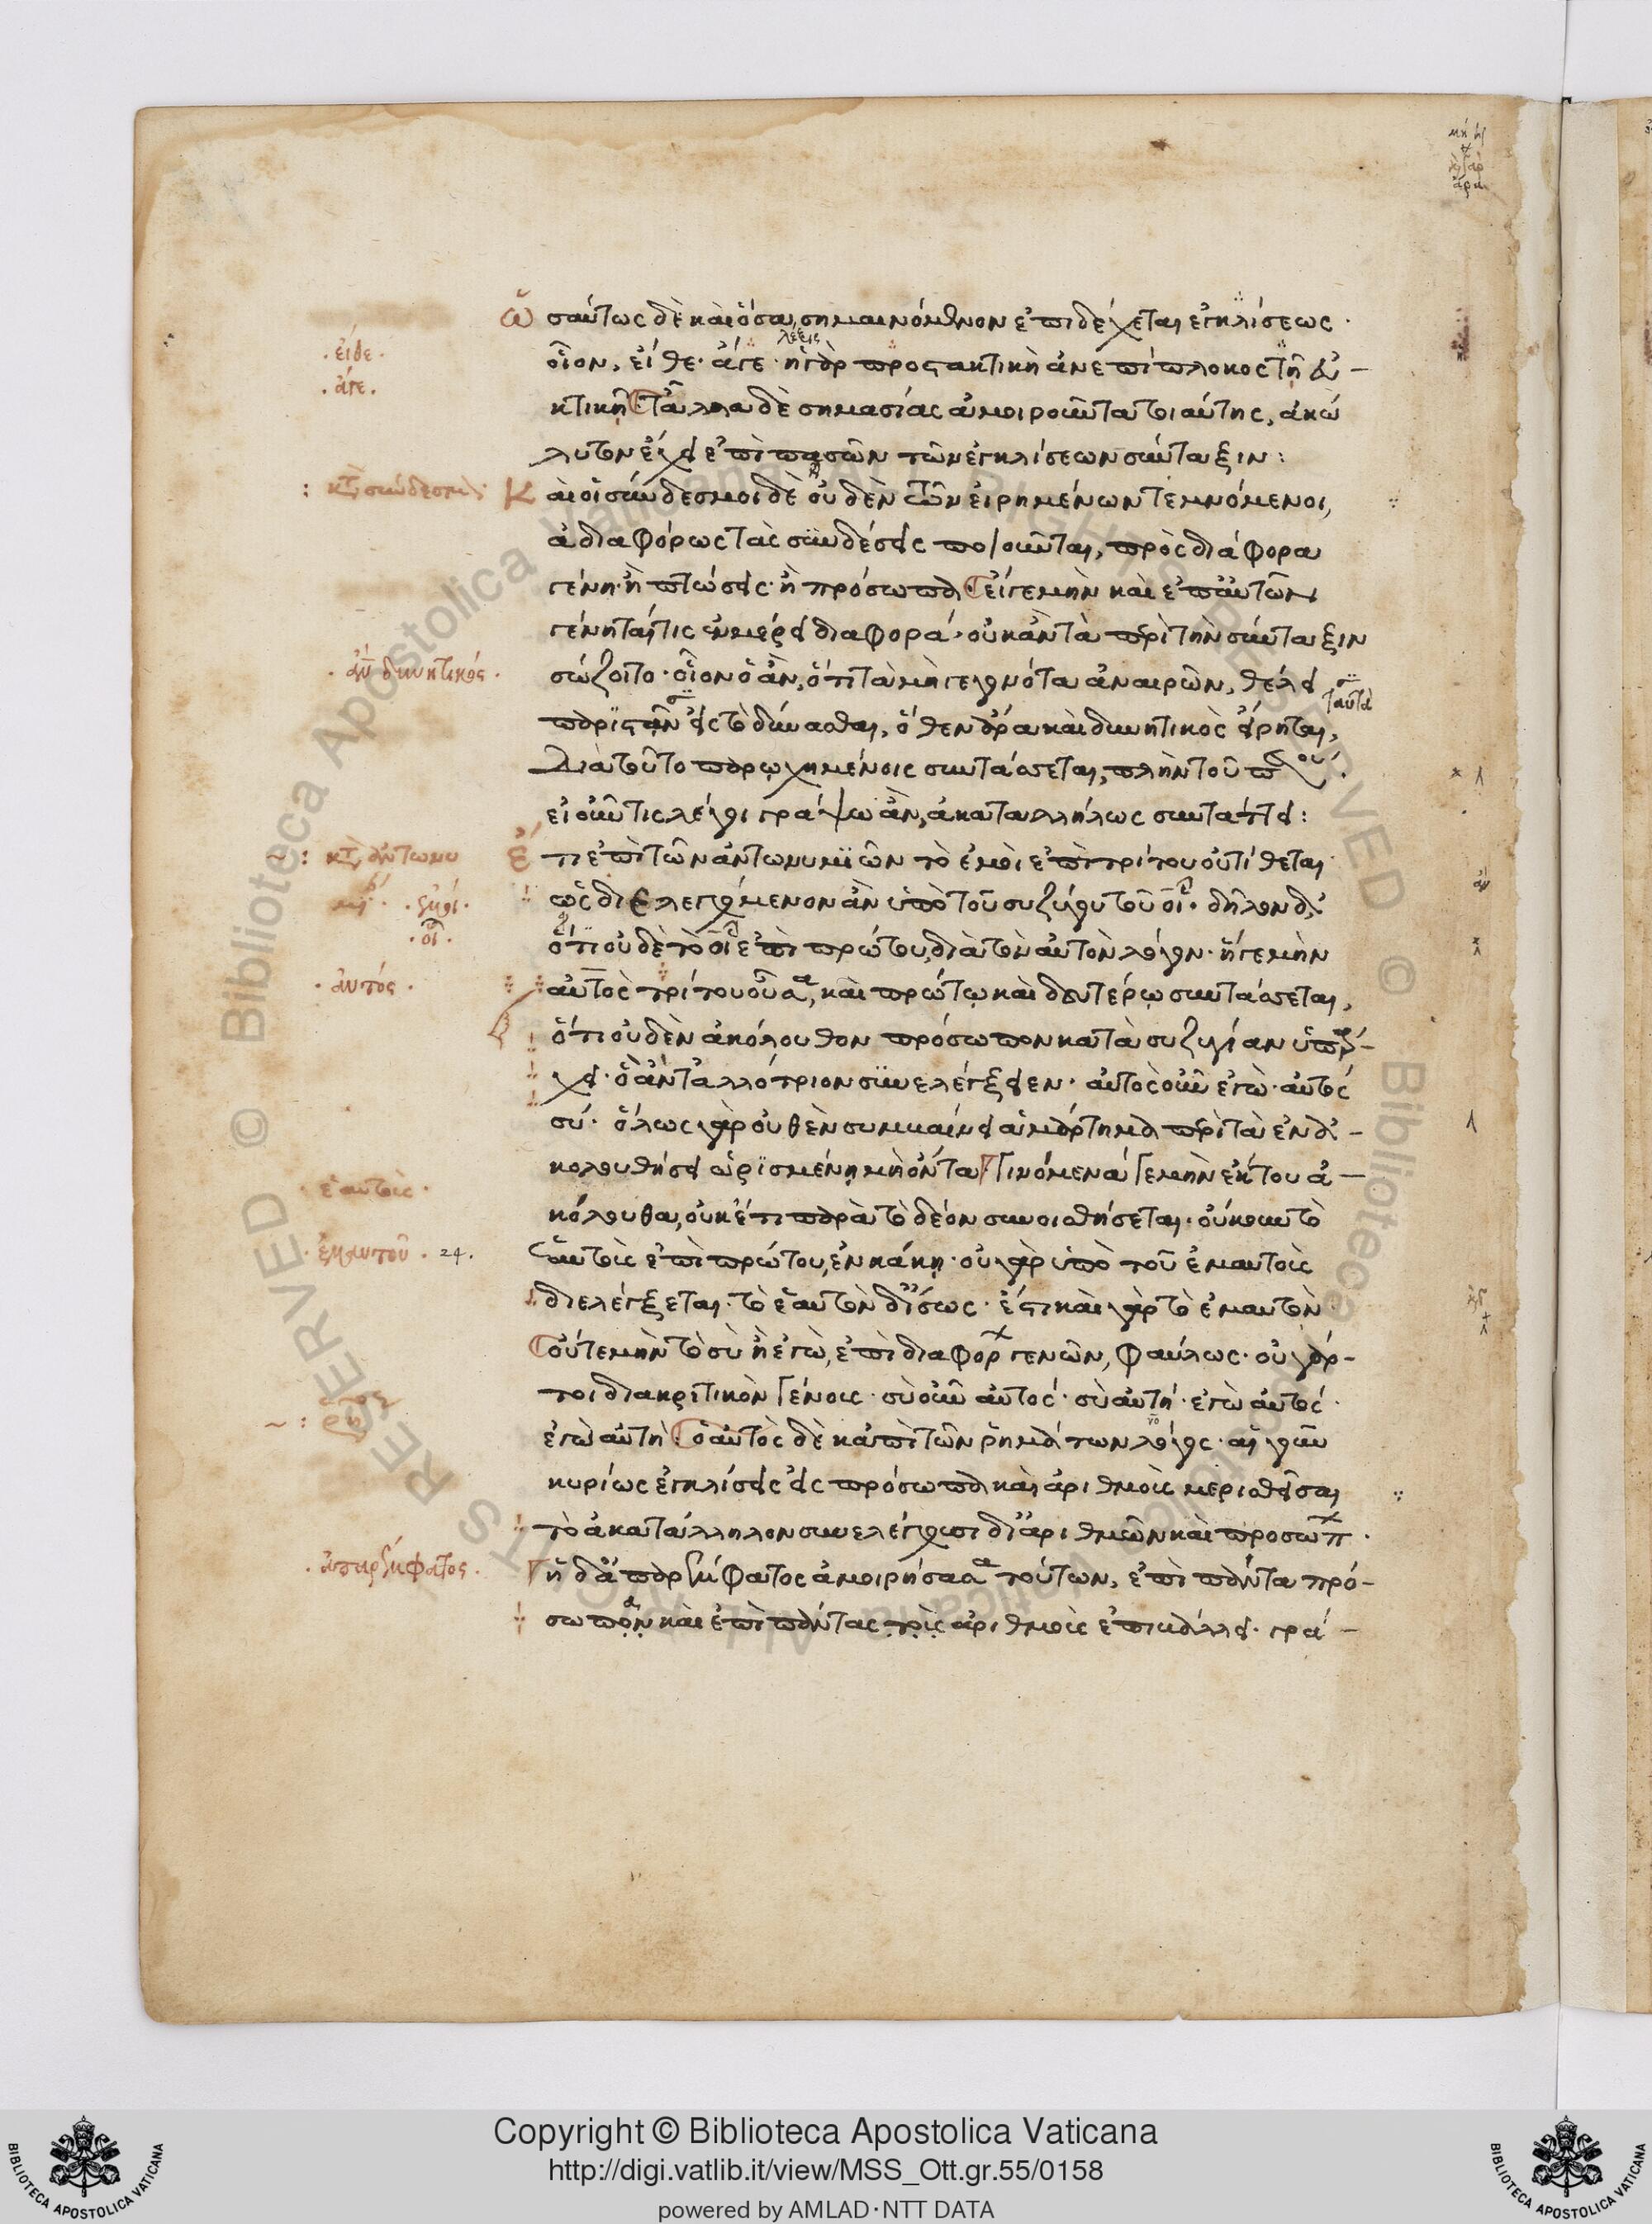 ὡσαύτως δὲ καὶ ὅσα σημαινόμενον ἐπιδέχεται ἐγκλίσεως·
οἷον, εἴθε· ἄγε· ἡ γὰρ προστακτικὴ ἀνεπίπλοκος τῇ εὐ-
λέξις
κτικῇ τἄλλα δὲ σημασίας ἀμοιροῦντα τοιαύτης, ἀκώ
λυτον ἔχει ἐπὶ πασῶν τῶν ἐγκλίσεων σύνταξιν:
Καὶ οἱ σύνδεσμοι δὲ οὐδὲν τῶν εἰρημένων τεμνόμενοι,
ἀδιαφόρως τὰς συνδέσεις ποιοῦνται, πρὸς διάφορα
γένη· ἢ πτώσεις· ἢ πρόσωπα εἴγε μὴν καὶ ἐπ' αὐτῶν
γένηταί τις ἐν μέρει διαφορά· οὐκ ἂν τὰ περὶ τὴν σύνταξιν
σώζοιτο· οἷον ὁ ἄν, ὅτι τὰ μὴ γεγονότα ἀναιρῶν, θέλει
ταῦτα
παριστᾶν εἰς τὸ δύνασθαι, ὅθεν ἄρα καὶ δυνητικὸς εἴρηται,
διὰ τοῦτο παρῳχημένοις συντάσσεται, πλὴν τοῦ
εἰ οὖν τις λέγοι γράψω ἄν, ἀκαταλλήλως συντάττει:
ἔτι ἐπὶ τῶν ἀντωνυμιῶν τὸ ἐμοὶ ἐπὶ τρίτου οὐ τίθεται
ὡς διελεγχόμενον ἂν ὑπὸ τοῦ συζύγου τοῦ οἷ· δῆλον δὲ
ὅτι οὐδὲ τὸ οἷ ἐπὶ πρώτου, διὰ τὸν αὐτὸν λόγον· ἥγε μὴν
αὐτὸς τρίτου οὖσα, καὶ πρώτῳ καὶ δευτέρῳ συντάσσεται,
ὅτι οὐδὲν ἀκόλουθον πρόσωπον κατὰ συζυγίαν ὑπάρ-
χει· ὃ ἂν τἀλλότριον συνελέγξειεν· αὐτὸς οὖν ἐγώ· αὐτὸς
σύ· ὅλως γὰρ οὐθὲν συμβαίνει ἁμάρτημα περὶ τὰ ἐν ἀ-
κολουθήσει ὡρισμένῃ μὴ ὄντα Γινόμενά γε μὴν ἐκ τοῦ ἀ-
κόλουθα, οὐκέτι παρὰ τὸ δέον συνοισθήσεται· οὔκουν τὸ
ἑαυτοῖς ἐπὶ πρώτου, ἐν κάκῃ· οὐ γὰρ ὑπὸ τοῦ ἐμαυτοῖς
διελέγξεται· τὸ ἑαυτὸν δ' ἴσως· ἔστι καὶ γὰρ τὸ ἐμαυτόν
οὔτε μὴν τὸ σὺ ἢ ἐγώ, ἐπὶ διαφόρων γενῶν, φαύλως· οὐ γάρ-
τοι διακριτικὸν γένους· σὺ οὖν αὐτός· σὺ αὐτή· ἐγὼ αὐτός·
ἐγὼ αὐτή ὁ αὐτὸς δὲ κἀπὶ τῶν ῥημάτων λόγος· αἱ γοῦν
κυρίως ἐγκλίσεις εἰς πρόσωπα καὶ ἀριθμοὺς μερισθεῖσαι
τὸ ἀκατάλληλον συνελέγχουσι δι' ἀριθμῶν καὶ προσώπων·
ἡ δ' ἀπαρέμφατος ἀμοιρήσασα τούτων, ἐπὶ πάντα πρό-
σωπον καὶ ἐπὶ πάντας τοὺς ἀριθμοὺς ἐπιβάλλει· γρά-
· εἴθε·
· ἄγε.
: κτ̅ συνδεσμ
· ἂν δυνητικός ·
~ : κτ̅ ἀντωνυ
· οἷ ·
· αὐτός ·
· ἑαυτοῖς ·
· ἐμαυτοῦ · 24.
· ἀπαρέμφατος ·
Copyright © Biblioteca Apostolica Vaticana
http://digi.vatlib.it/view/MSS_Ott.gr.55/0158
powered by AMLAD·NTT DATA
BIBLIOTECA APOSTOLICA VATICANA
BIBLIOTECA APOSTOLICA VATICANA